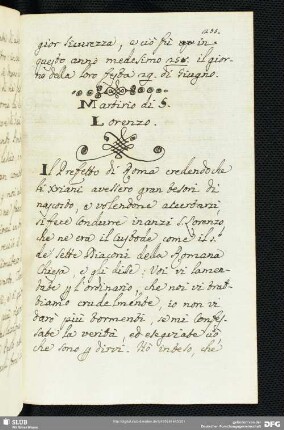 gior sicurezza, e ciò fù in
questo anno medesimo 258. il gior
no della loro festa 29. di Giugno.
Martirio di S.
Lorenzo.
Il Prefetto di Roma credendo che
li Xriani avessero gran tesori di
nascosto, e volendone
si fece condurre inanzi S. Lorenzo
che ne era il Custode come il p.º
de sette Diaconi della Romana
Chiesa, e gli disse, Voi vi lamen
tate p l'ordinario, che noi vi trat
tiamo crudelmente, io non vi
darò più tormenti, se mi confes
sate la verità, ed eseguiate ciò
che sono p dirvi. Hò inteso, che
SLUB
DFG